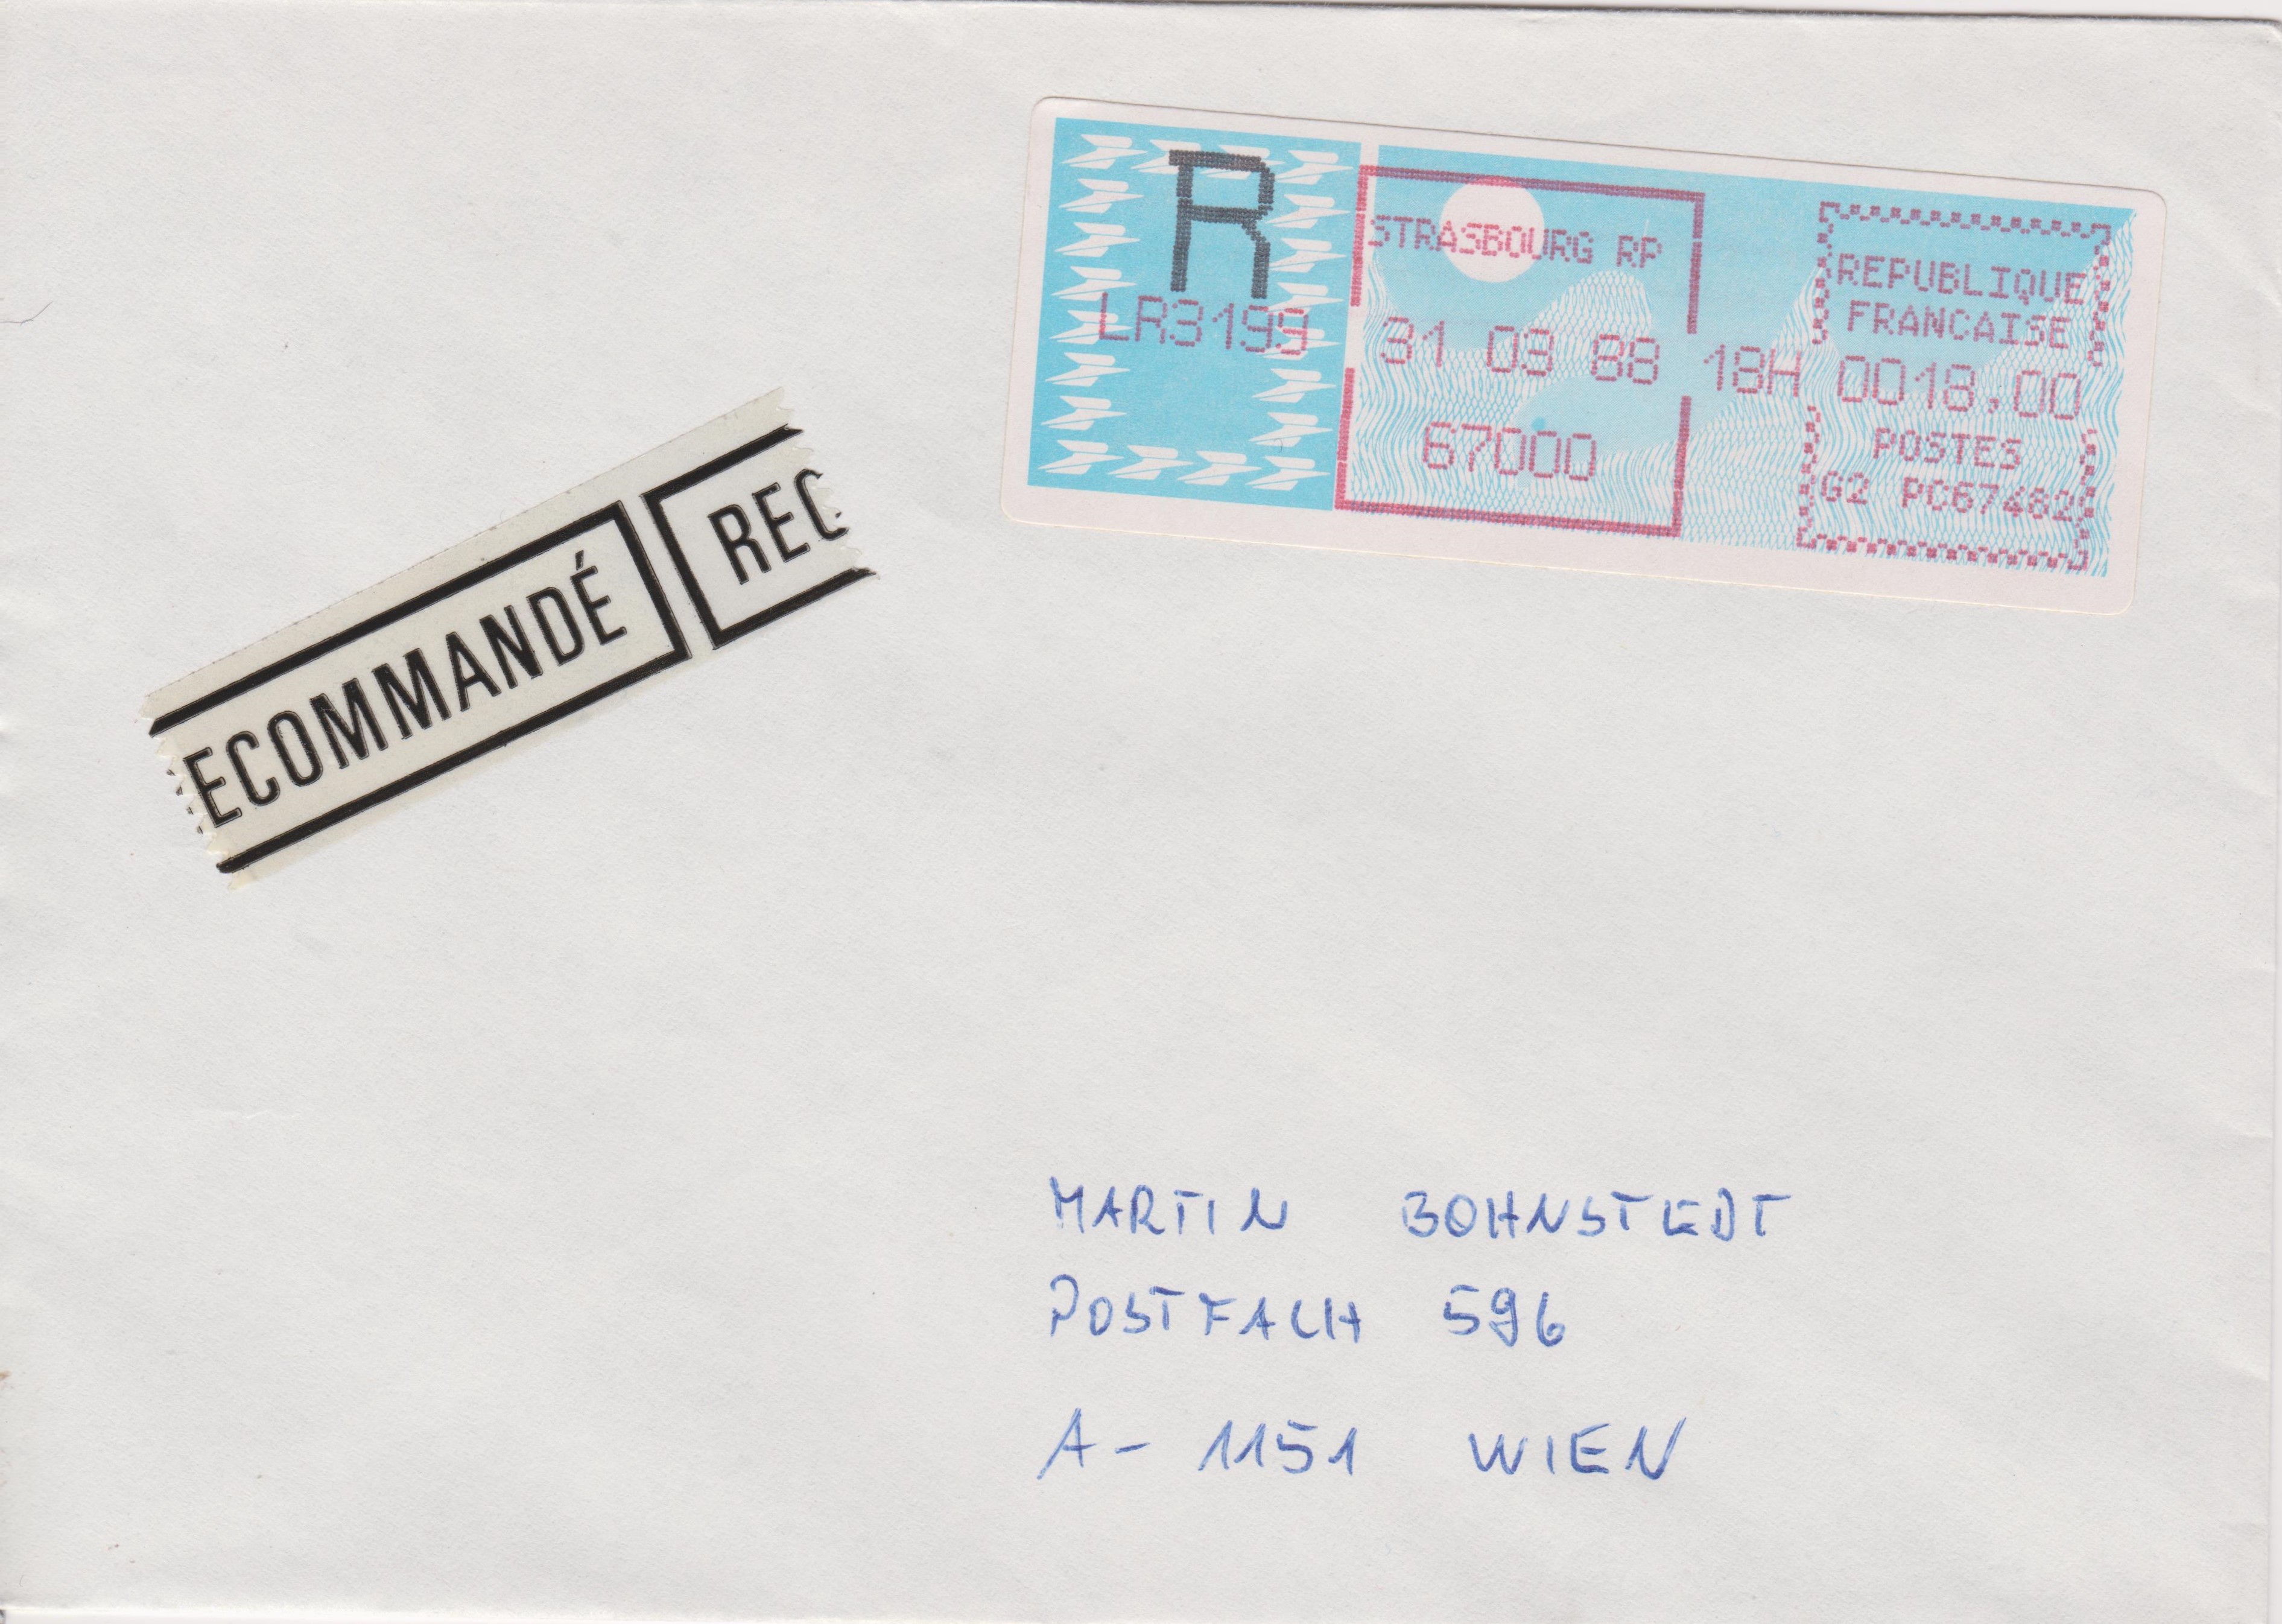 R
LR3199
STRASBOURG RP
31 03 88 18H
67000
REPUBLIQUE
FRANCAISE
0018,00
POSTES
G2 PC67482
ECOMMANDÉ REC
MARTIN BOHNSTEDT
POSTFACH 596
A - 1151 WIEN